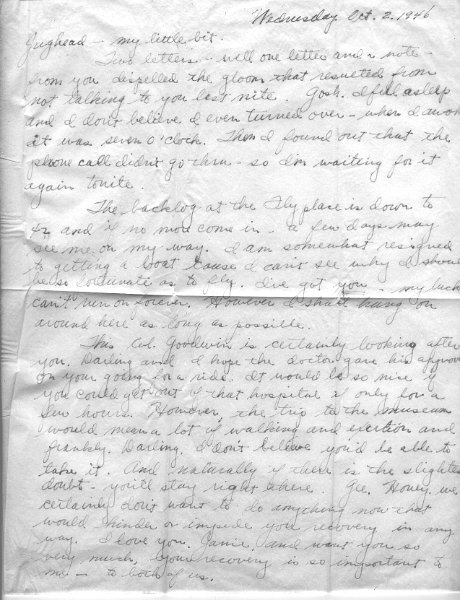 Wednesday Oct. 2, 1946
Jughead - my little bit.
Two letters - well one letter and a note -
from you dispelled the gloom that resulted from
not talking to you last nite. Gosh. I fell asleep
and I don't believe I even turned over - when I awoke
it was seven o'clock. Then I found out that the
phone call didn't go thru - so I'm waiting for it
again tonite.
The backlog at the Fly place is down to
42 and if no more come in - a few days may
see me on my way. I am somewhat resigned
to getting a boat cause I can't see why I should
be so fortunate as to fly. I've got you - my luck
can't run on forever. However I shall hang on
around here as long as possible.
Col. Goodwin is certainly looking after
you, Darling and I hope the doctor gave his approval
on your going for a ride. It would be so nice if
you could get out of that hospital if only for a
few hours. However, the trip to the museum
would mean a lot of walking and exertion and
frankly, Darling, I don't believe you'd be able to
take it. And naturally if there is the slightest
doubt - you'll stay right there. Gee, Honey, we
certainly don't want to do anything now that
would hinder or impede your recovery in any
way. I love you, Janie, and want you so
very much. Your recovery is so important to
me - to both of us.